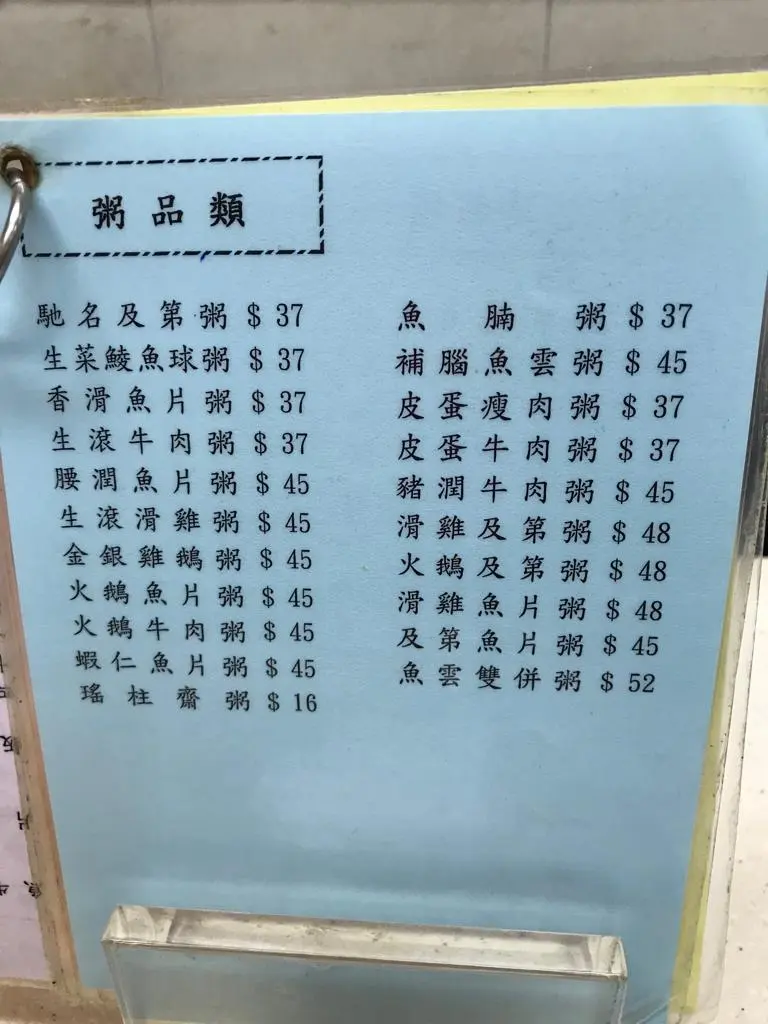 粥品類
馳名及第粥 $ 37
生菜鯪魚球粥 $ 37
香滑魚片粥 $ 37
生滾牛肉粥 $ 37
腰潤魚片粥 $ 45
生滾滑雞粥 $ 45
金銀雞鵝粥 $ 45
火鵝魚片粥 $ 45
火鵝牛肉粥 $ 45
蝦仁魚片粥 $ 45
瑤柱齋粥 $ 16
魚腩粥 $ 37
補腦魚雲粥 $ 45
皮蛋瘦肉粥 $ 37
皮蛋牛肉粥 $ 37
豬潤牛肉粥 $ 45
滑雞及第粥 $ 48
火鵝及第粥 $ 48
滑雞魚片粥 $ 48
及第魚片粥 $ 45
魚雲雙併粥 $ 52